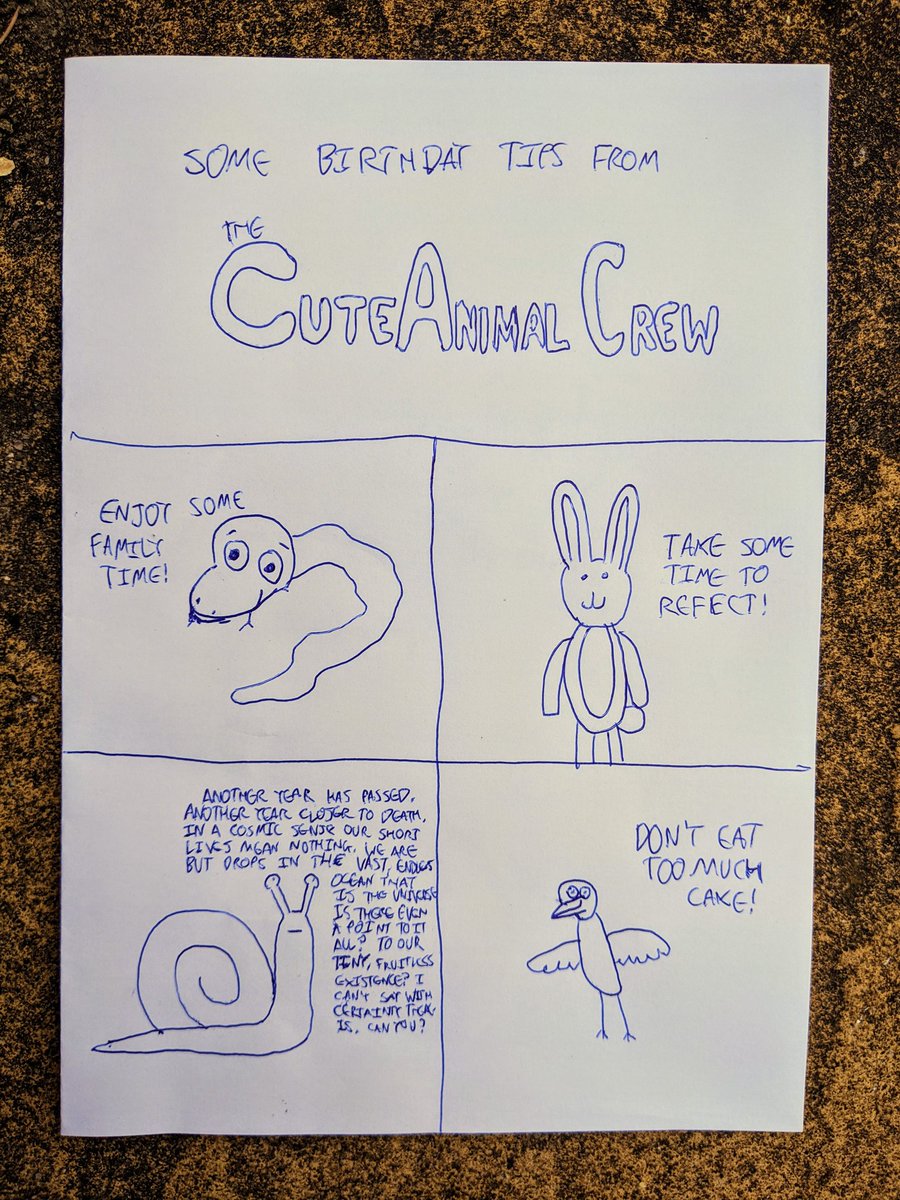 SOME BIRTHDAY TIPS FROM
THE
CUTE ANIMAL CREW
ENJOY SOME
FAMILY
TIME!
TAKE SOME
TIME TO
REFECT!
ANOTHER YEAR HAS PASSED.
ANOTHER YEAR CLOSER TO DEATH.
IN A COSMIC SENSE OUR SHORT
LIVES MEAN NOTHING. WE ARE
BUT DROPS IN THE VAST, ENDLESS
OCEAN THAT
IS THE UNIVERSE
IS THERE EVEN
A POINT TO IT
ALL? TO OUR
TINY, FRUITLESS
EXISTENCE? I
CAN'T SAY WITH
CERTAINTY THERE
IS. CAN YOU?
DON'T EAT
TOO MUCH
CAKE!